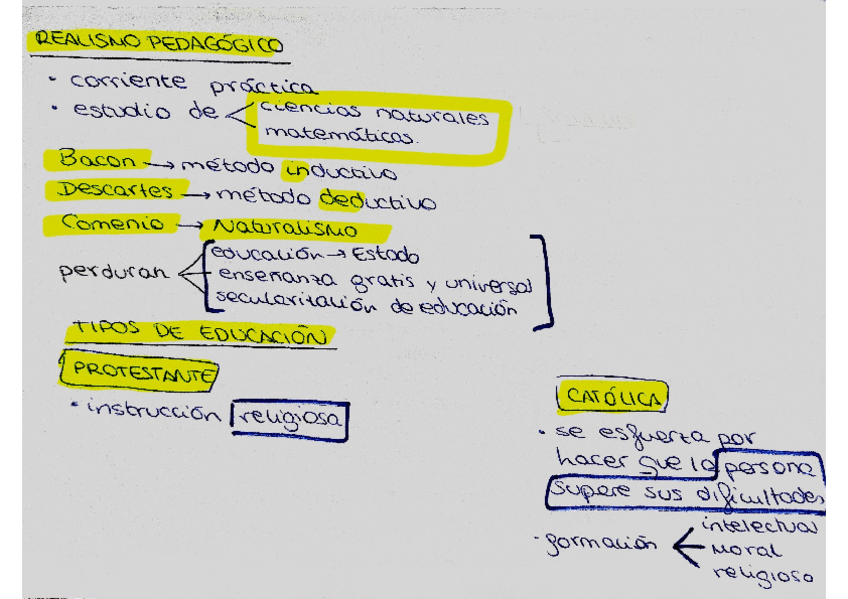 REALISMO PEDAGÓGICO
• corriente práctica
• estudio de
ciencias naturales
matemáticas.
Bacon → método inductivo
Descartes → método deductivo
Comenio → Naturalismo
perduran
educación → Estado
enseñanza gratis y universal
secularización de educación
TIPOS DE EDUCACIÓN
PROTESTANTE
• instrucción religiosa
CATÓLICA
• se esfuerza por
hacer que la persona
supere sus dificultades
• formación
intelectual
moral
religioso